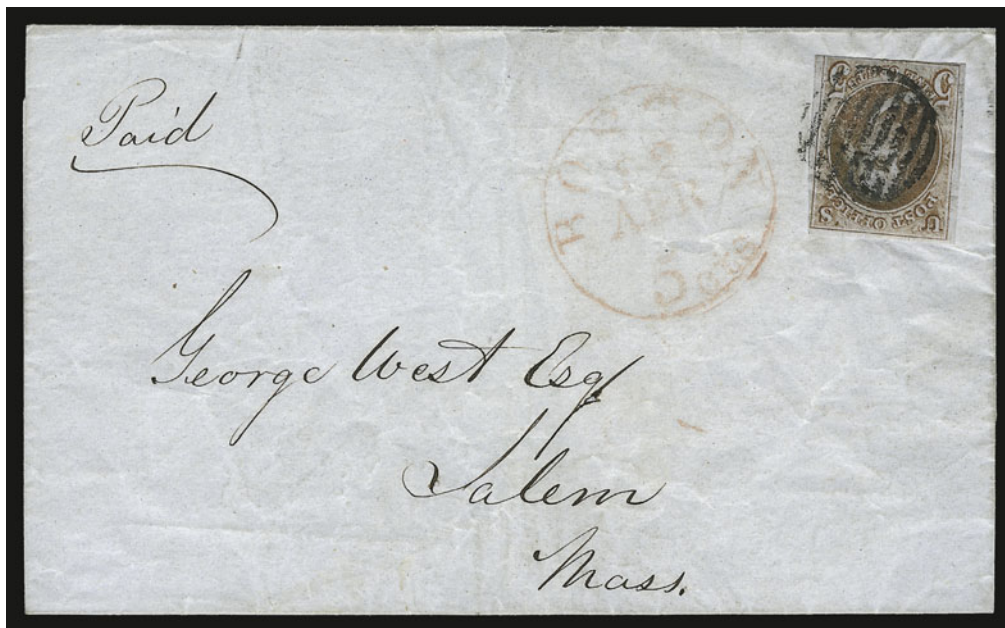 Paid
BOSTON
5 cts
U.S.
POST OFFICE
5 5
George West Esq
Salem
Mass.